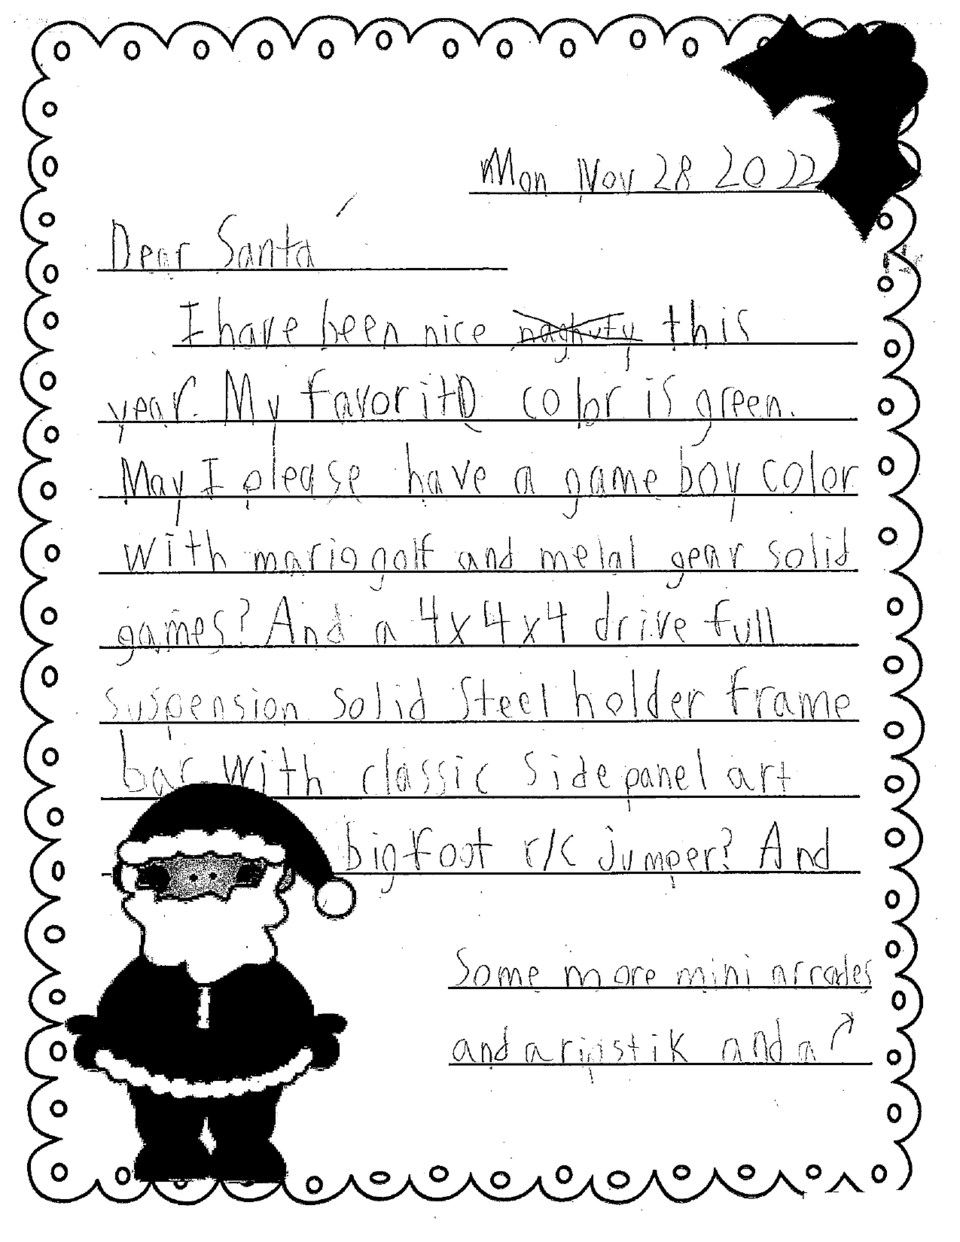 Mon Nov 28 2022
Dear Santa
I have been nice naghuty this
year. My favorite color is green.
May I please have a game boy color
with mario golf and metal gear solid
games? And a 4x4x4 drive full
suspension solid steel holder frame
bar with classic side panel art
bigfoot r/c jumper? And
Some more mini arcades
and a ripstik and a